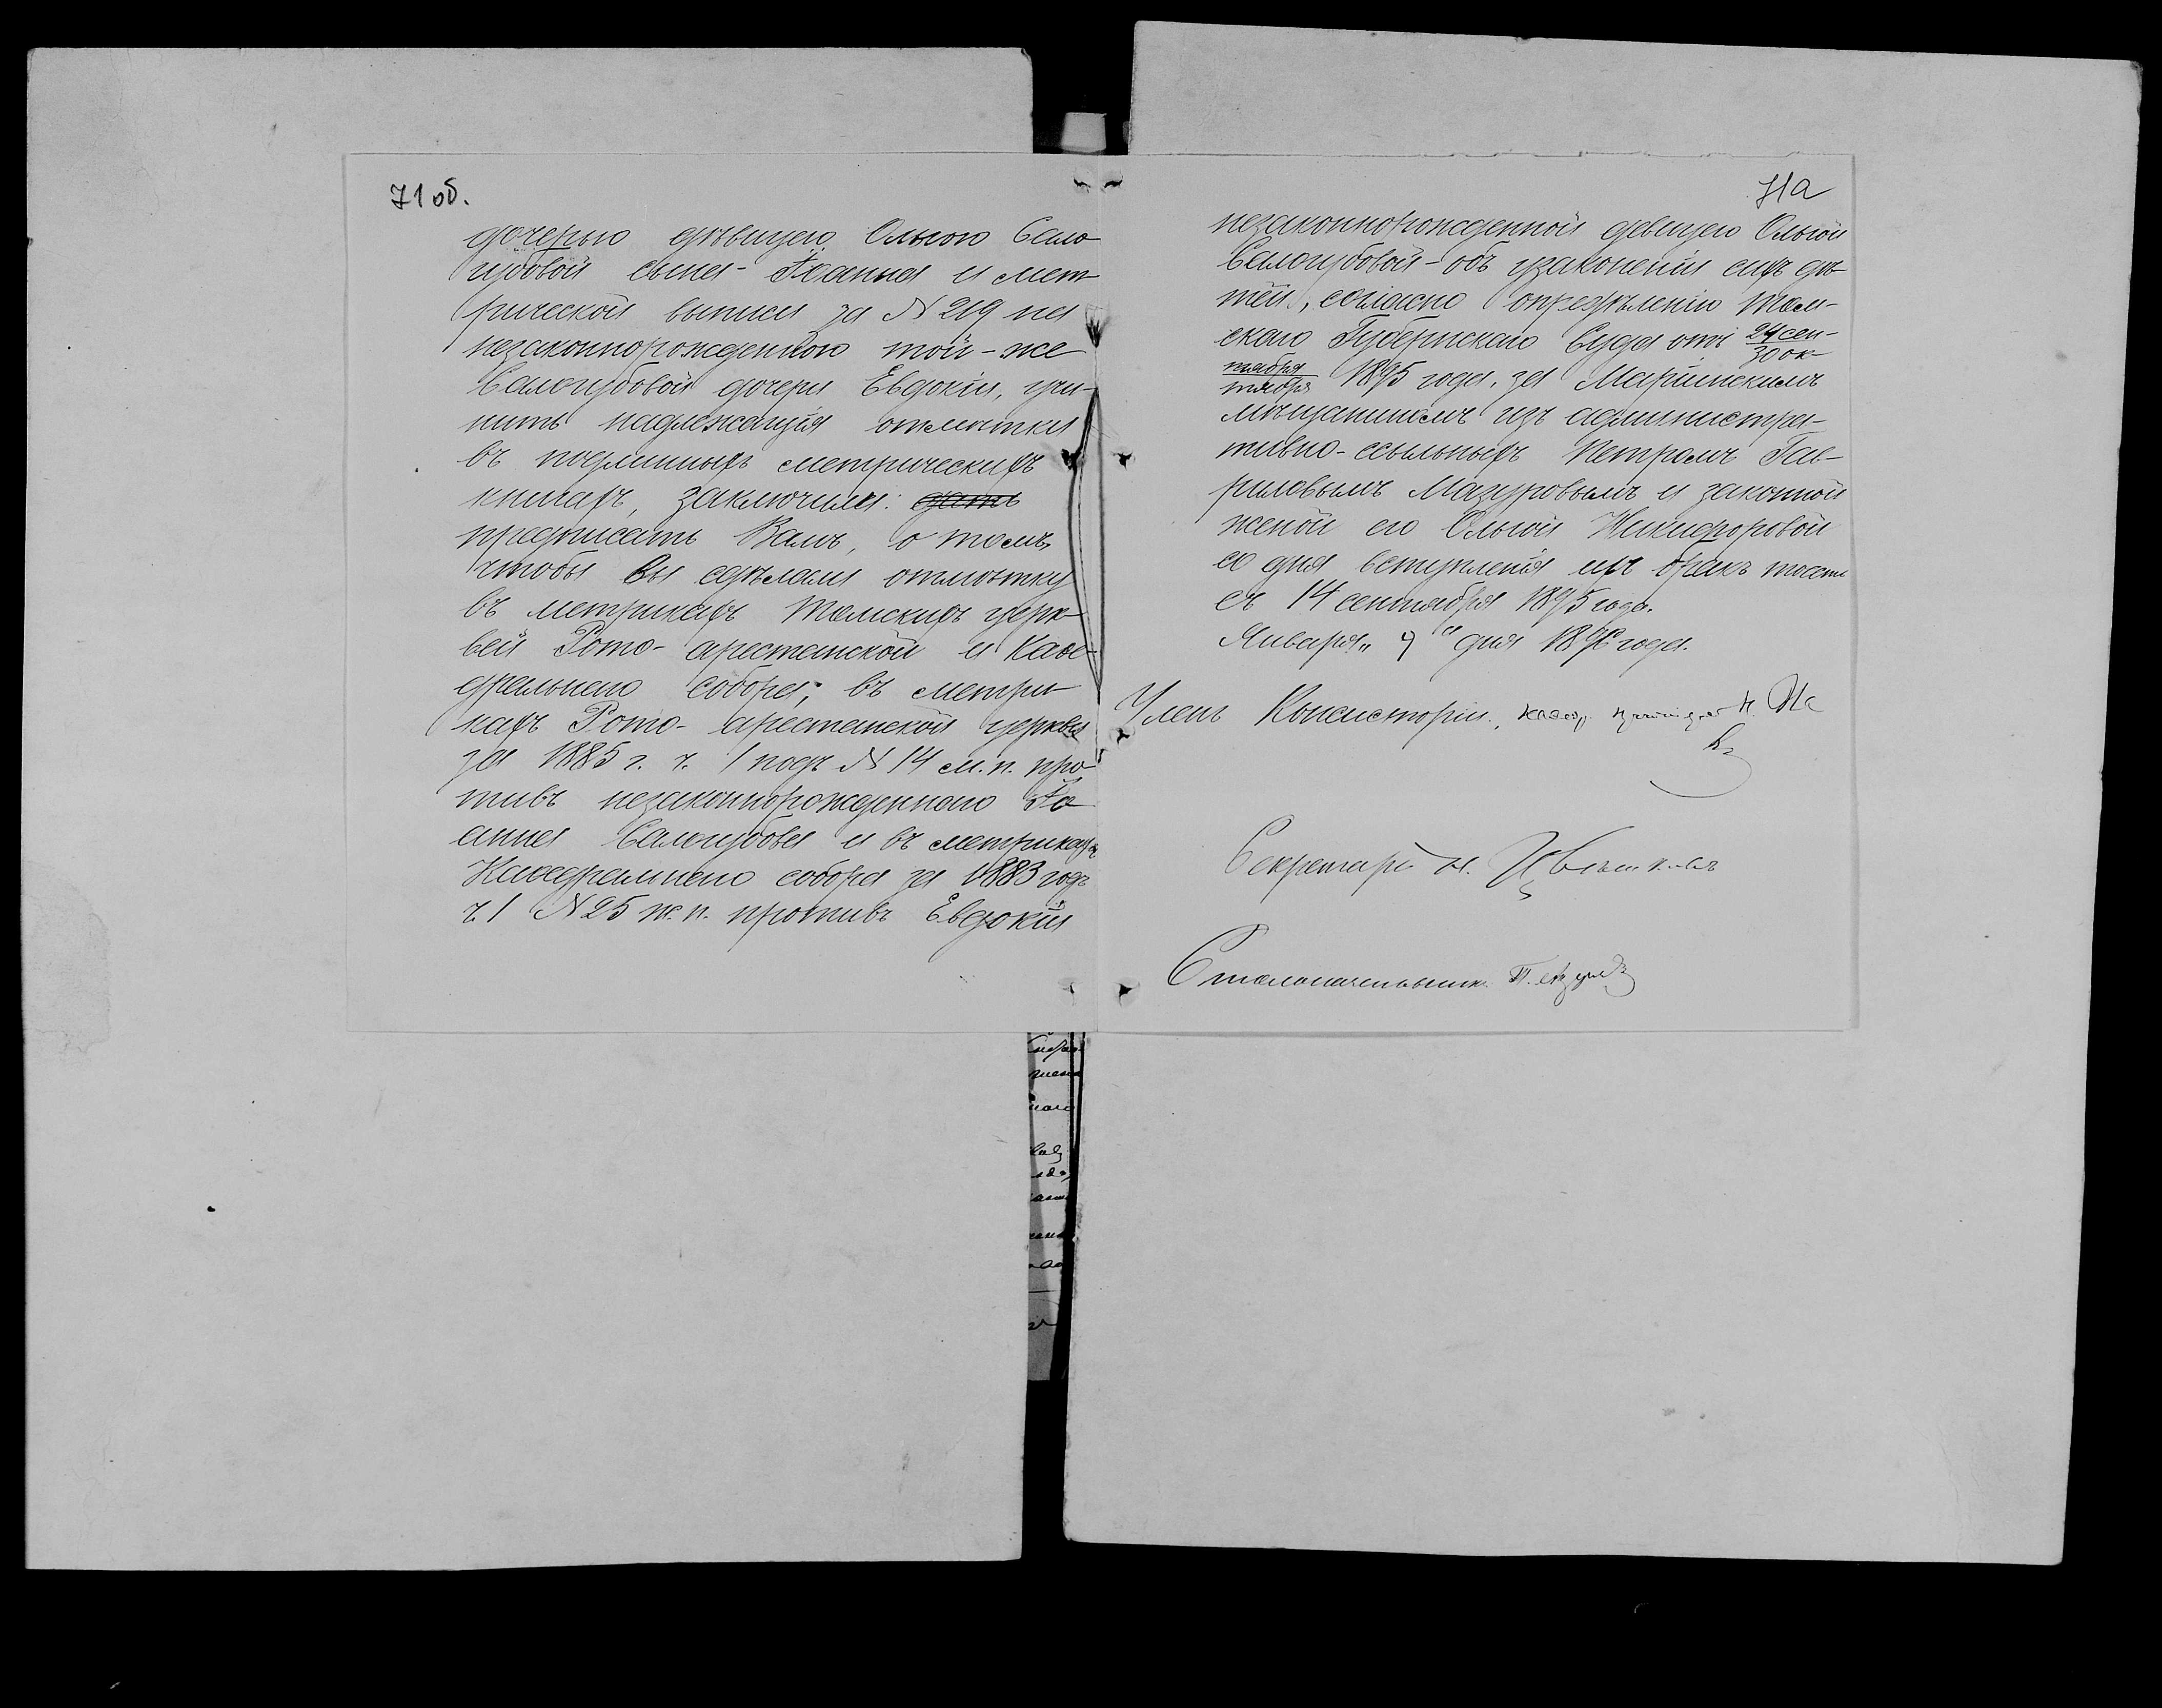 71 об.
дочерью дѣвицею Ольгою Сало-
губовой сына - Іоанна и мет-
рической выписи за № 219 на
незаконнорожденною той-же
Салогубовой дочери Евдокіи, учи-
нить надлежащія отмѣтки
въ подлинныхъ метрическихъ
книгахъ, заключили: дать
предписать Вамъ, о томъ,
чтобы Вы сдѣлали отмѣтку
въ метрикахъ Томскихъ церк-
вей Рото-арестантской и Каѳе-
дральнаго собора; въ метри-
кахъ Рото-арестантской церкви
за 1885 г. ч. 1 подъ № 14 м. п. про-
тивъ незаконнорожденнаго Іо-
анна Салогубова и въ метрикахъ
Каѳедральнаго собора за 1883 годъ
ч. 1 № 25 ж. п. противъ Евдокіи
71а
незаконнорожденной девицею Ольгой
Салогубовой - объ узаконеніи сихъ дѣ-
тей, согласно опредѣленію Том-
скаго Губернскаго Суда отъ 24 сен-
30 ок-
тября
тября 1895 года, за Маріинскимъ
мѣщаниномъ изъ администра-
тивно-ссыльныхъ Петромъ Гав-
риловымъ Мазуровымъ и законной
женой его Ольгой Никифоровой
со дня вступленія ихъ въ бракъ то есть
съ 14 сентября 1895 года.
Января „9" дня 1896 года.
Членъ Консисторіи,
Секретарь
Столоначальникъ